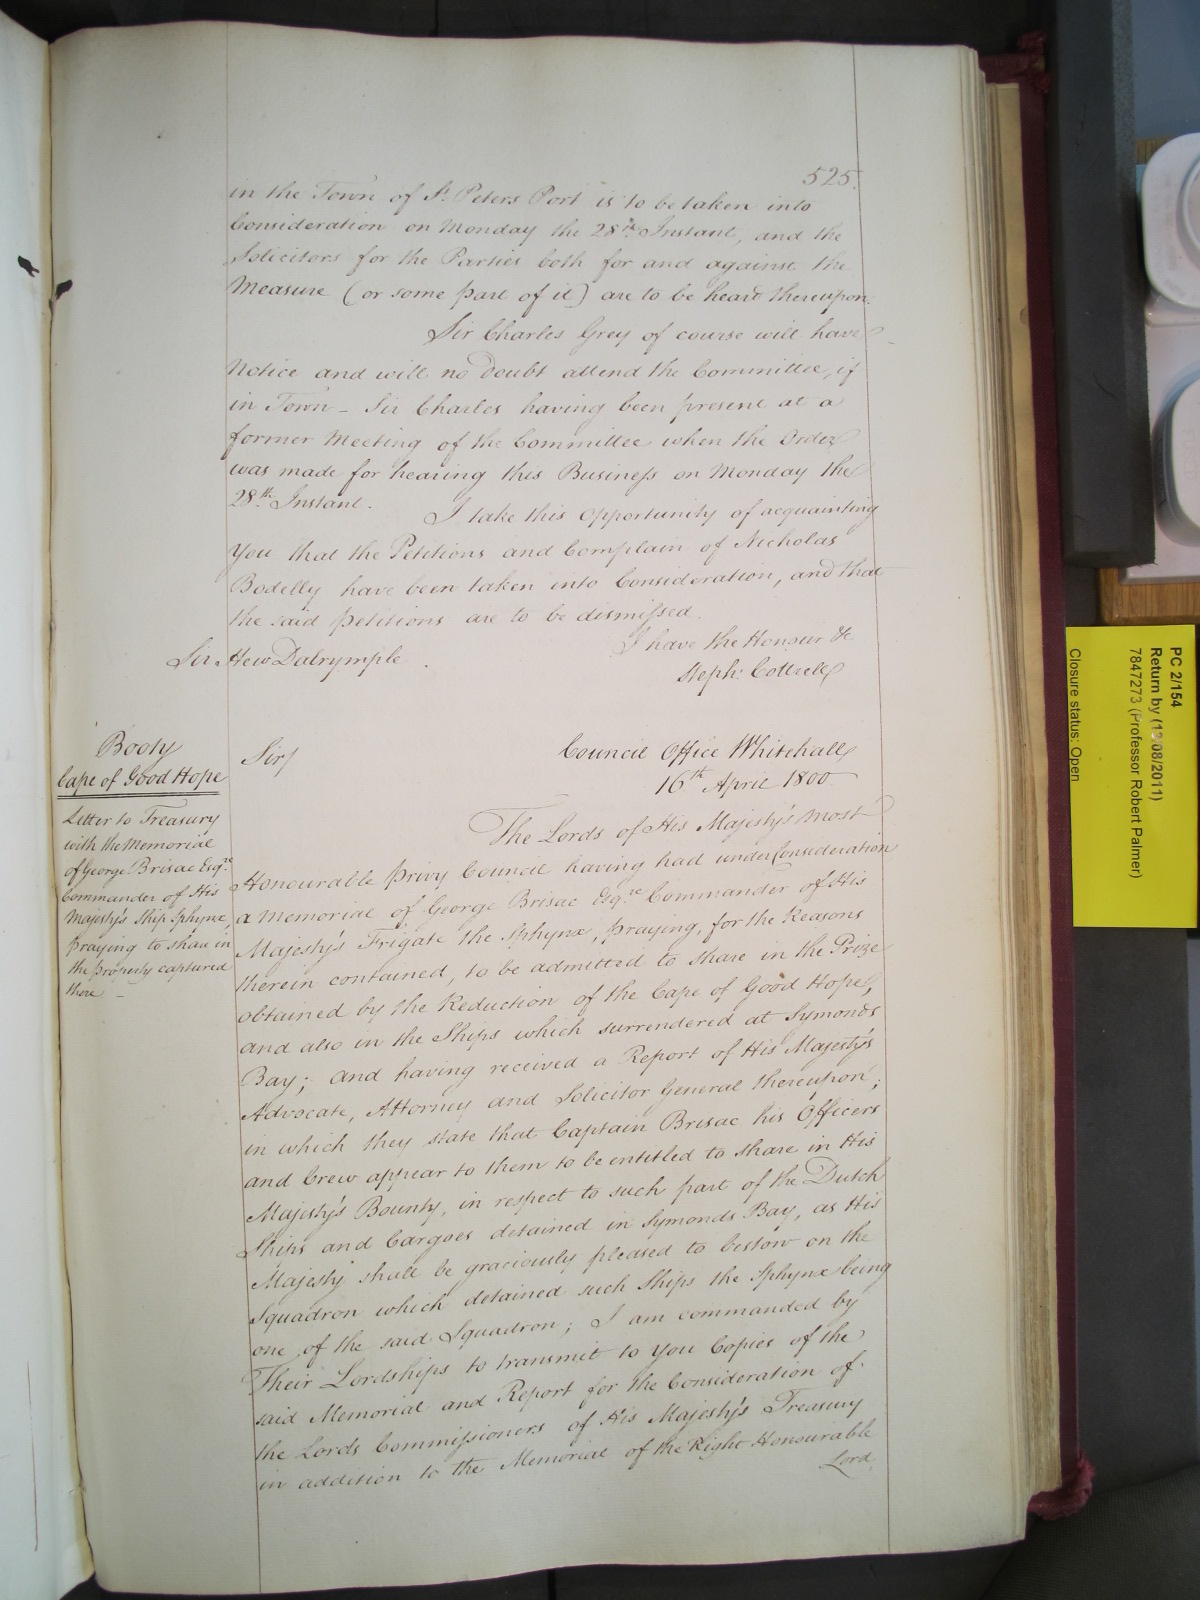 525.
in the Town of St. Peters Port is to be taken into
Consideration on Monday the 28th. Instant, and the
Solicitors for the Parties both for and against the
Measure (or some part of it) are to be heard thereupon.
Sir Charles Grey of course will have
Notice and will no Doubt attend the Committee, if
in Town - Sir Charles having been present at a
former Meeting of the Committee when the Order
was made for hearing this Business on Monday the
28th. Instant.
I take this Opportunity of acquainting
You that the Petitions and Complain of Nicholas
Bodelly have been taken into Consideration, and that
the said petitions are to be dismissed.
I have the Honour &c
Sir Hew Dalrymple.
Steph: Cottrell
Booty
Cape of Good Hope
Letter to Treasury
with the Memorial
of George Brisac Esqre.
Commander of His
Majesty's Ship Sphynx,
praying to share in
the property captured
there -
Sir/
Council Office Whitehall
16th April 1800
The Lords of His Majesty's most
Honourable privy Council having had under Consideration
a Memorial of George Brisac Esqre. Commander of His
Majesty's Frigate the Sphynx, praying, for the Reasons
therein contained, to be admitted to share in the Prize
obtained by the Reduction of the Cape of Good Hope,
and also in the Ships which surrendered at Symonds
Bay; and having received a Report of His Majesty's
Advocate, Attorney and Solicitor General thereupon;
in which they state that Captain Brisac his Officers
and Crew appear to them to be entitled to share in His
Majesty's Bounty, in respect to such part of the Dutch
Ships and Cargoes detained in Symonds Bay, as His
Majesty shall be graciously pleased to bestow on the
Squadron which detained such Ships the Sphynx being
one of the said Squadron; I am commanded by
Their Lordships to transmit to You Copies of the
said Memorial and Report for the Consideration of
the Lords Commissioners of His Majesty's Treasury
in addition to the Memorial of the Right Honourable
Lord
PC 2/154
Return by (12/08/2011)
7847273 (Professor Robert Palmer)
Closure status: Open